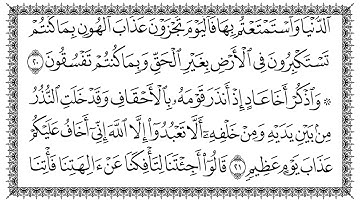 ٱلدُّنْيَا وَٱسْتَمْتَعْتُم بِهَا فَٱلْيَوْمَ تُجْزَوْنَ عَذَابَ ٱلْهُونِ بِمَا كُنتُمْ
تَسْتَكْبِرُونَ فِى ٱلْأَرْضِ بِغَيْرِ ٱلْحَقِّ وَبِمَا كُنتُمْ تَفْسُقُونَ ٢٠
۞ وَٱذْكُرْ أَخَا عَادٍ إِذْ أَنذَرَ قَوْمَهُۥ بِٱلْأَحْقَافِ وَقَدْ خَلَتِ ٱلنُّذُرُ
مِنۢ بَيْنِ يَدَيْهِ وَمِنْ خَلْفِهِۦٓ أَلَّا تَعْبُدُوٓا۟ إِلَّا ٱللَّهَ إِنِّىٓ أَخَافُ عَلَيْكُمْ
عَذَابَ يَوْمٍ عَظِيمٍ ٢١ قَالُوٓا۟ أَجِئْتَنَا لِتَأْفِكَنَا عَنْ ءَالِهَتِنَا فَأْتِنَا